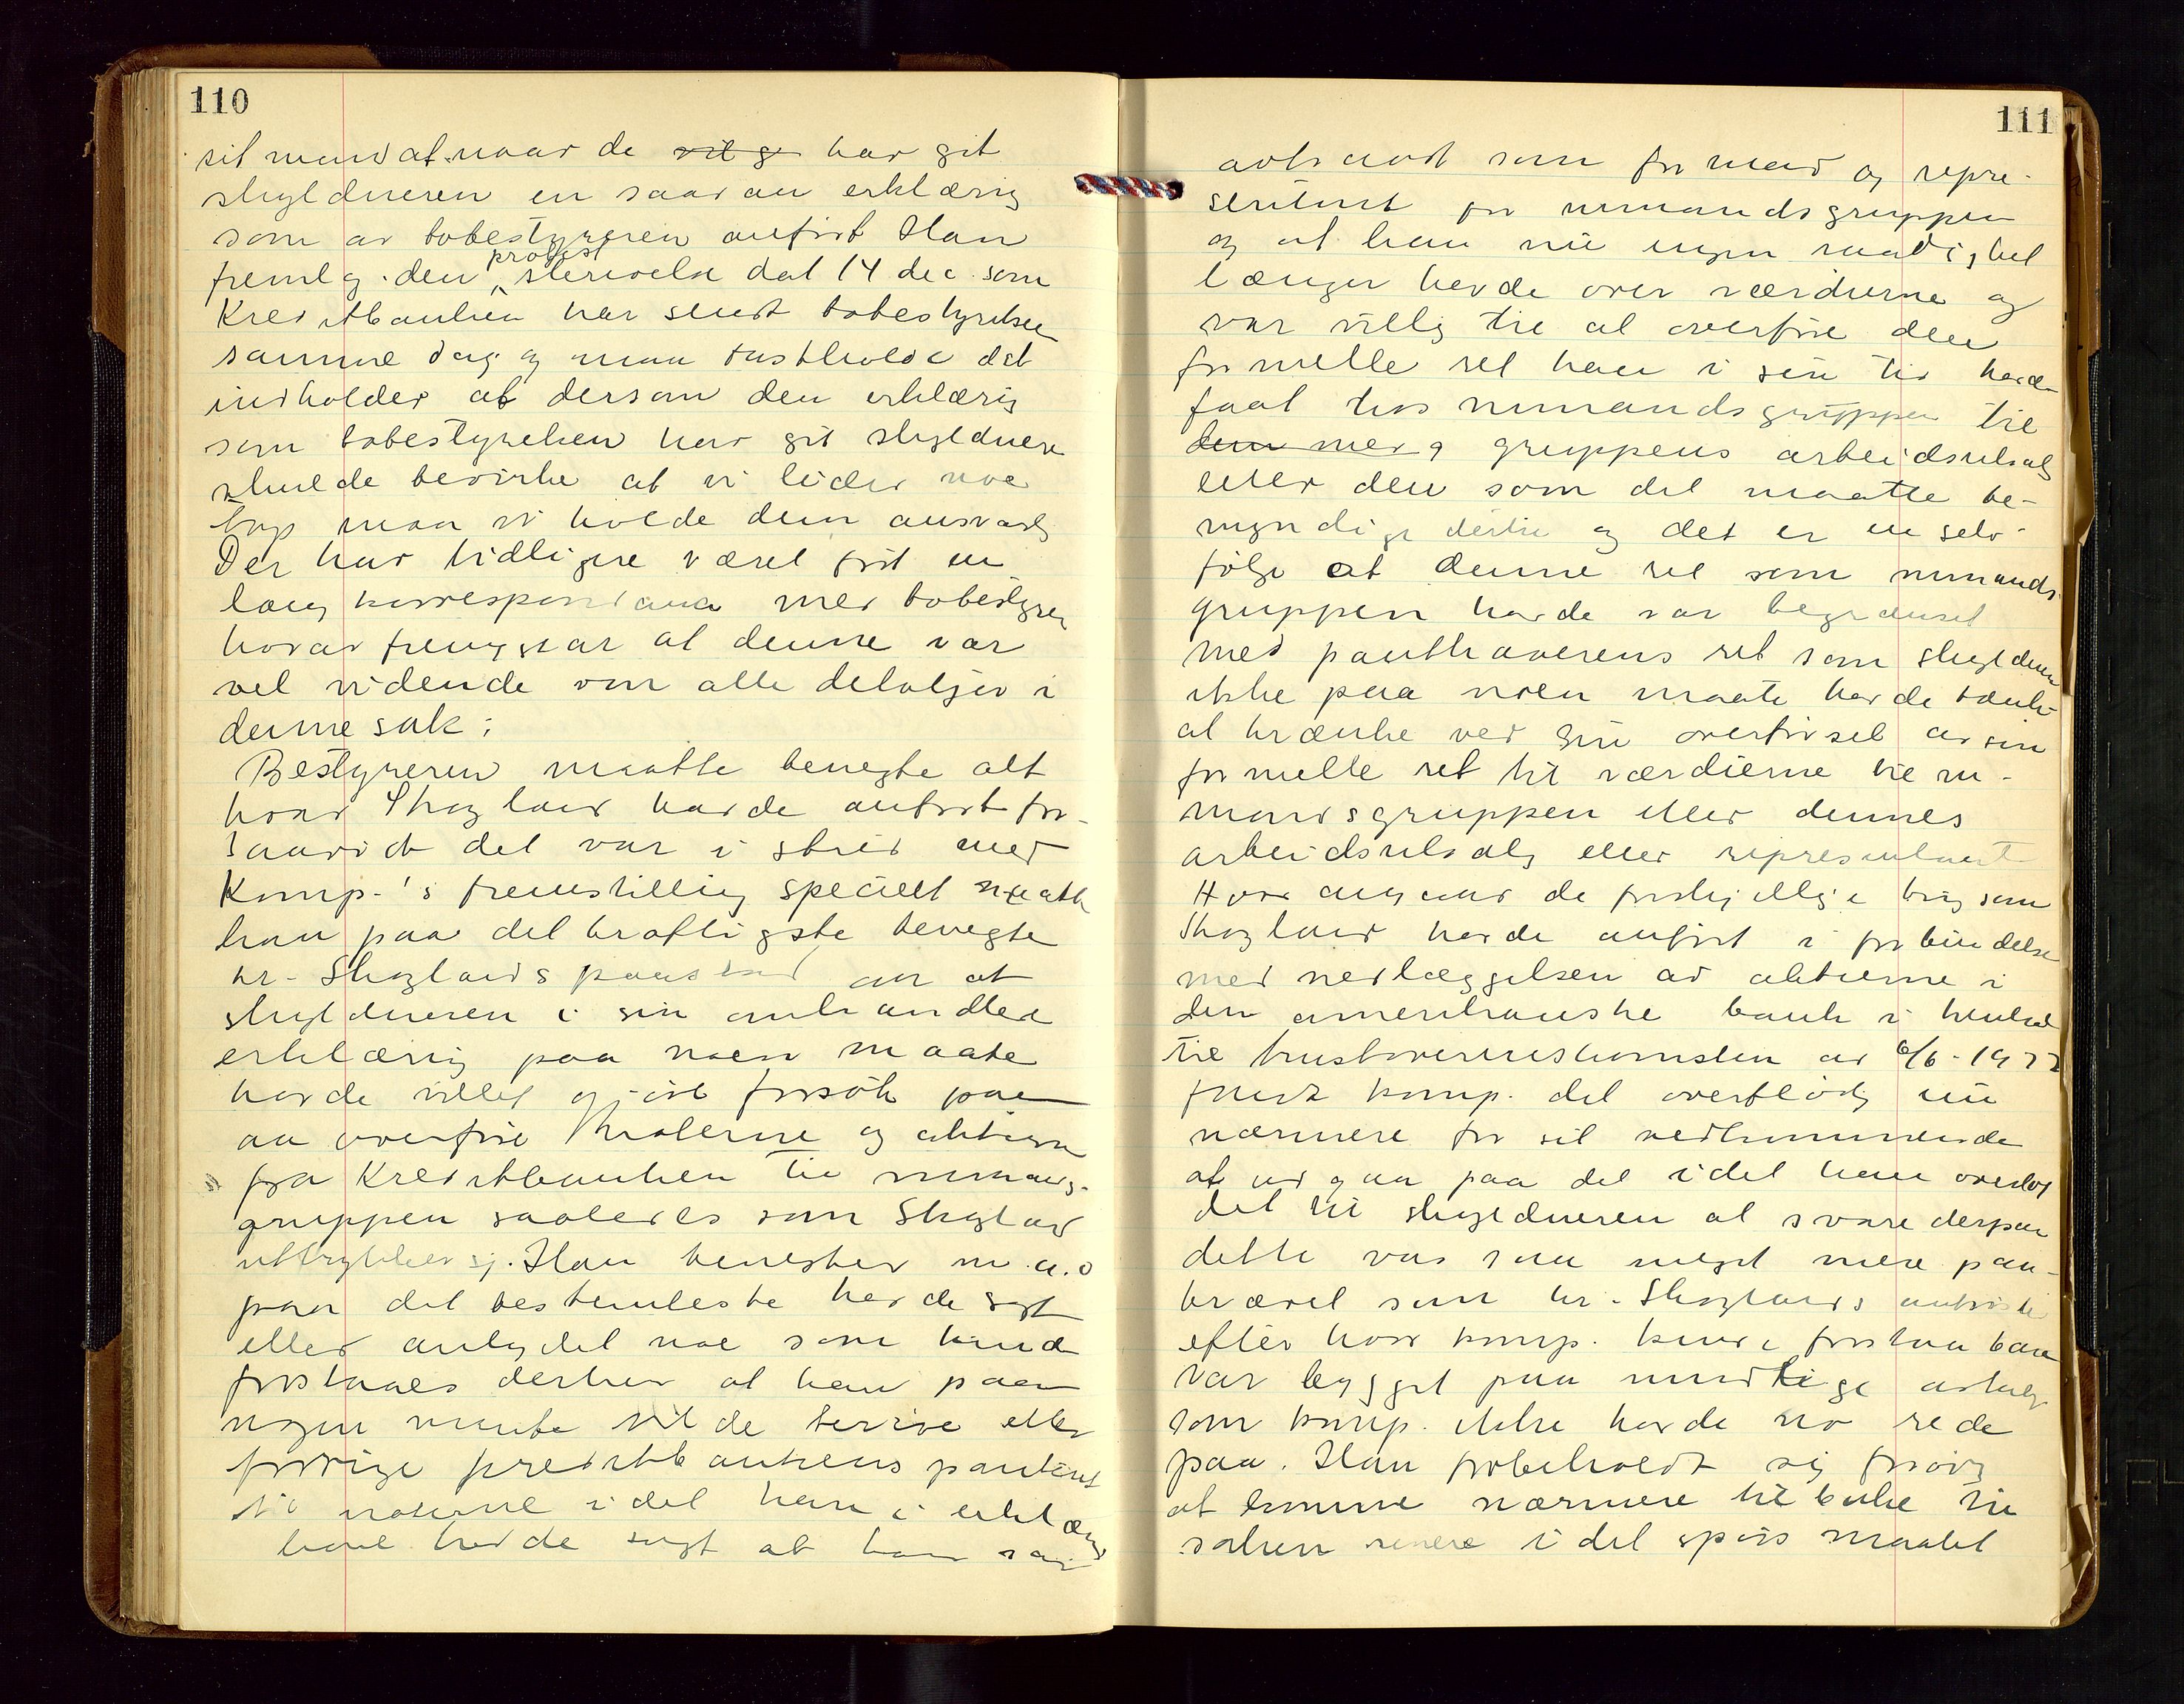 110
sit mandat naar de vilge har git
skyldneren en saadan erklæring
som av bobestyreren anført Han
fremlg. den protest skrivelse dat 14 dec. som
Kreditbanken har sendt bobestyrelsen
samme dag og maa fastholde det
indholder at dersom den erklæring
som bobestyrelsen har git skyldneren
skulde bevirke at vi lider noe
tap maa vi holde dem ansvarlg
Der har tidligere været ført en
lang korrespondance med bobestyrer
hvorav fremgaar at denne var
vel vidende om alle detaljer i
denne sak;
Bestyreren maatte benegte alt
hvad Skogland hadde anført for-
saavidt det var i strid med
Komp-'s fremstilling specielt maatte
han paa det kraftigste benegte
hr. Skoglands paastand om at
skyldneren i sin omhandlede
erklæring paa noen maate
hadde villet gjøre forsøk paa
aa overføre Kralerne og aktierne
fra Kreditbanken til nimands-
gruppen saaledes som Skogland
uttrykker sj. Han benegter m.a.o
paa det bestemteste ha de sagt
eller antydet noe som kunde
forstaaes derhen at han paa
nogen maate vilde berøve eller
forringe Kreditbankens panteret
til noterne idet han i erklæring
hans hadde sagt at han var
111
avtraadt som formand og repre-
sentant for nimandsgruppen
og at han nu ingen raadighet
længer havde over værdierne og
var villig til at overføre den
formelle ret han i sin tid hadde
faat hos nimandsgruppen til
den med 9 gruppens arbeidsutvalg
eller den som det maatte be-
myndige dertil og det er en selv-
følge at denne ret som nimands-
gruppen hadde var begrænset
med panthaverens ret som skyldneren
ikke paa noen maate hadde tænkt
at krænke ved sin overførsel av sin
formelle ret til værdierne til ni-
mandsgruppen eller dennes
arbeidsutvalg eller representant
Hvad angaar de forskjellige ting som
Skogland hadde anført i forbindelse
med nedlæggelsen av aktierne i
den amerikanske bank i henhold
til trustoverenskomsten av 6/6-1922
fandt komp. det overflødig nu
nærmere for sit vedkommende
at indgaa paa det idet han overlot
det til skyldneren at svare derpaa
dette var saa meget mere paa-
krævet som hr. Skoglands anførsler
efter hvad komp. kunde forstaa bare
var bygget paa mundtlige avtaler
som komp. ikke hadde no rede
paa. Han forbeholdt sig forøvrig
at komme nærmere tilbake til
saken senere idet spørsmaalet